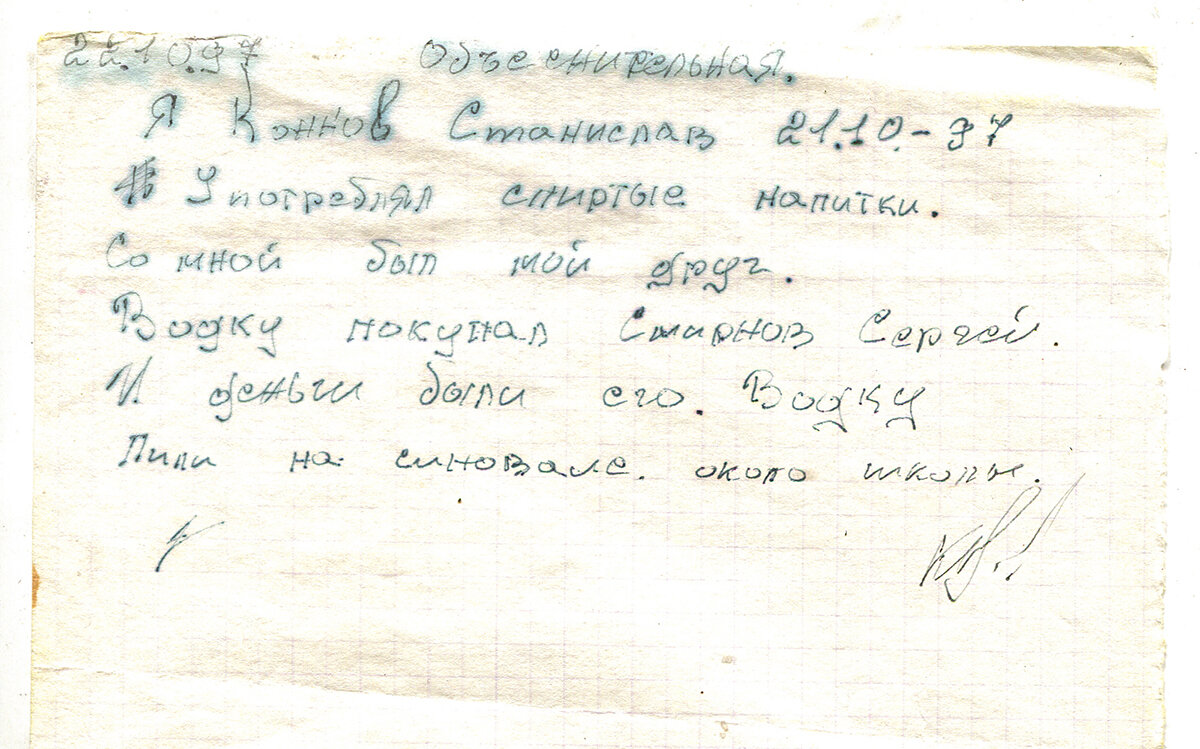 22.10.97 Объеснительная.
Я Коннов Станислав 21.10.-97
Употреблял спиртые напитки.
Со мной был мой друг.
Водку покупал Смирнов Сергей.
И деньги были его. Водку
Пили на синовале. около школы.